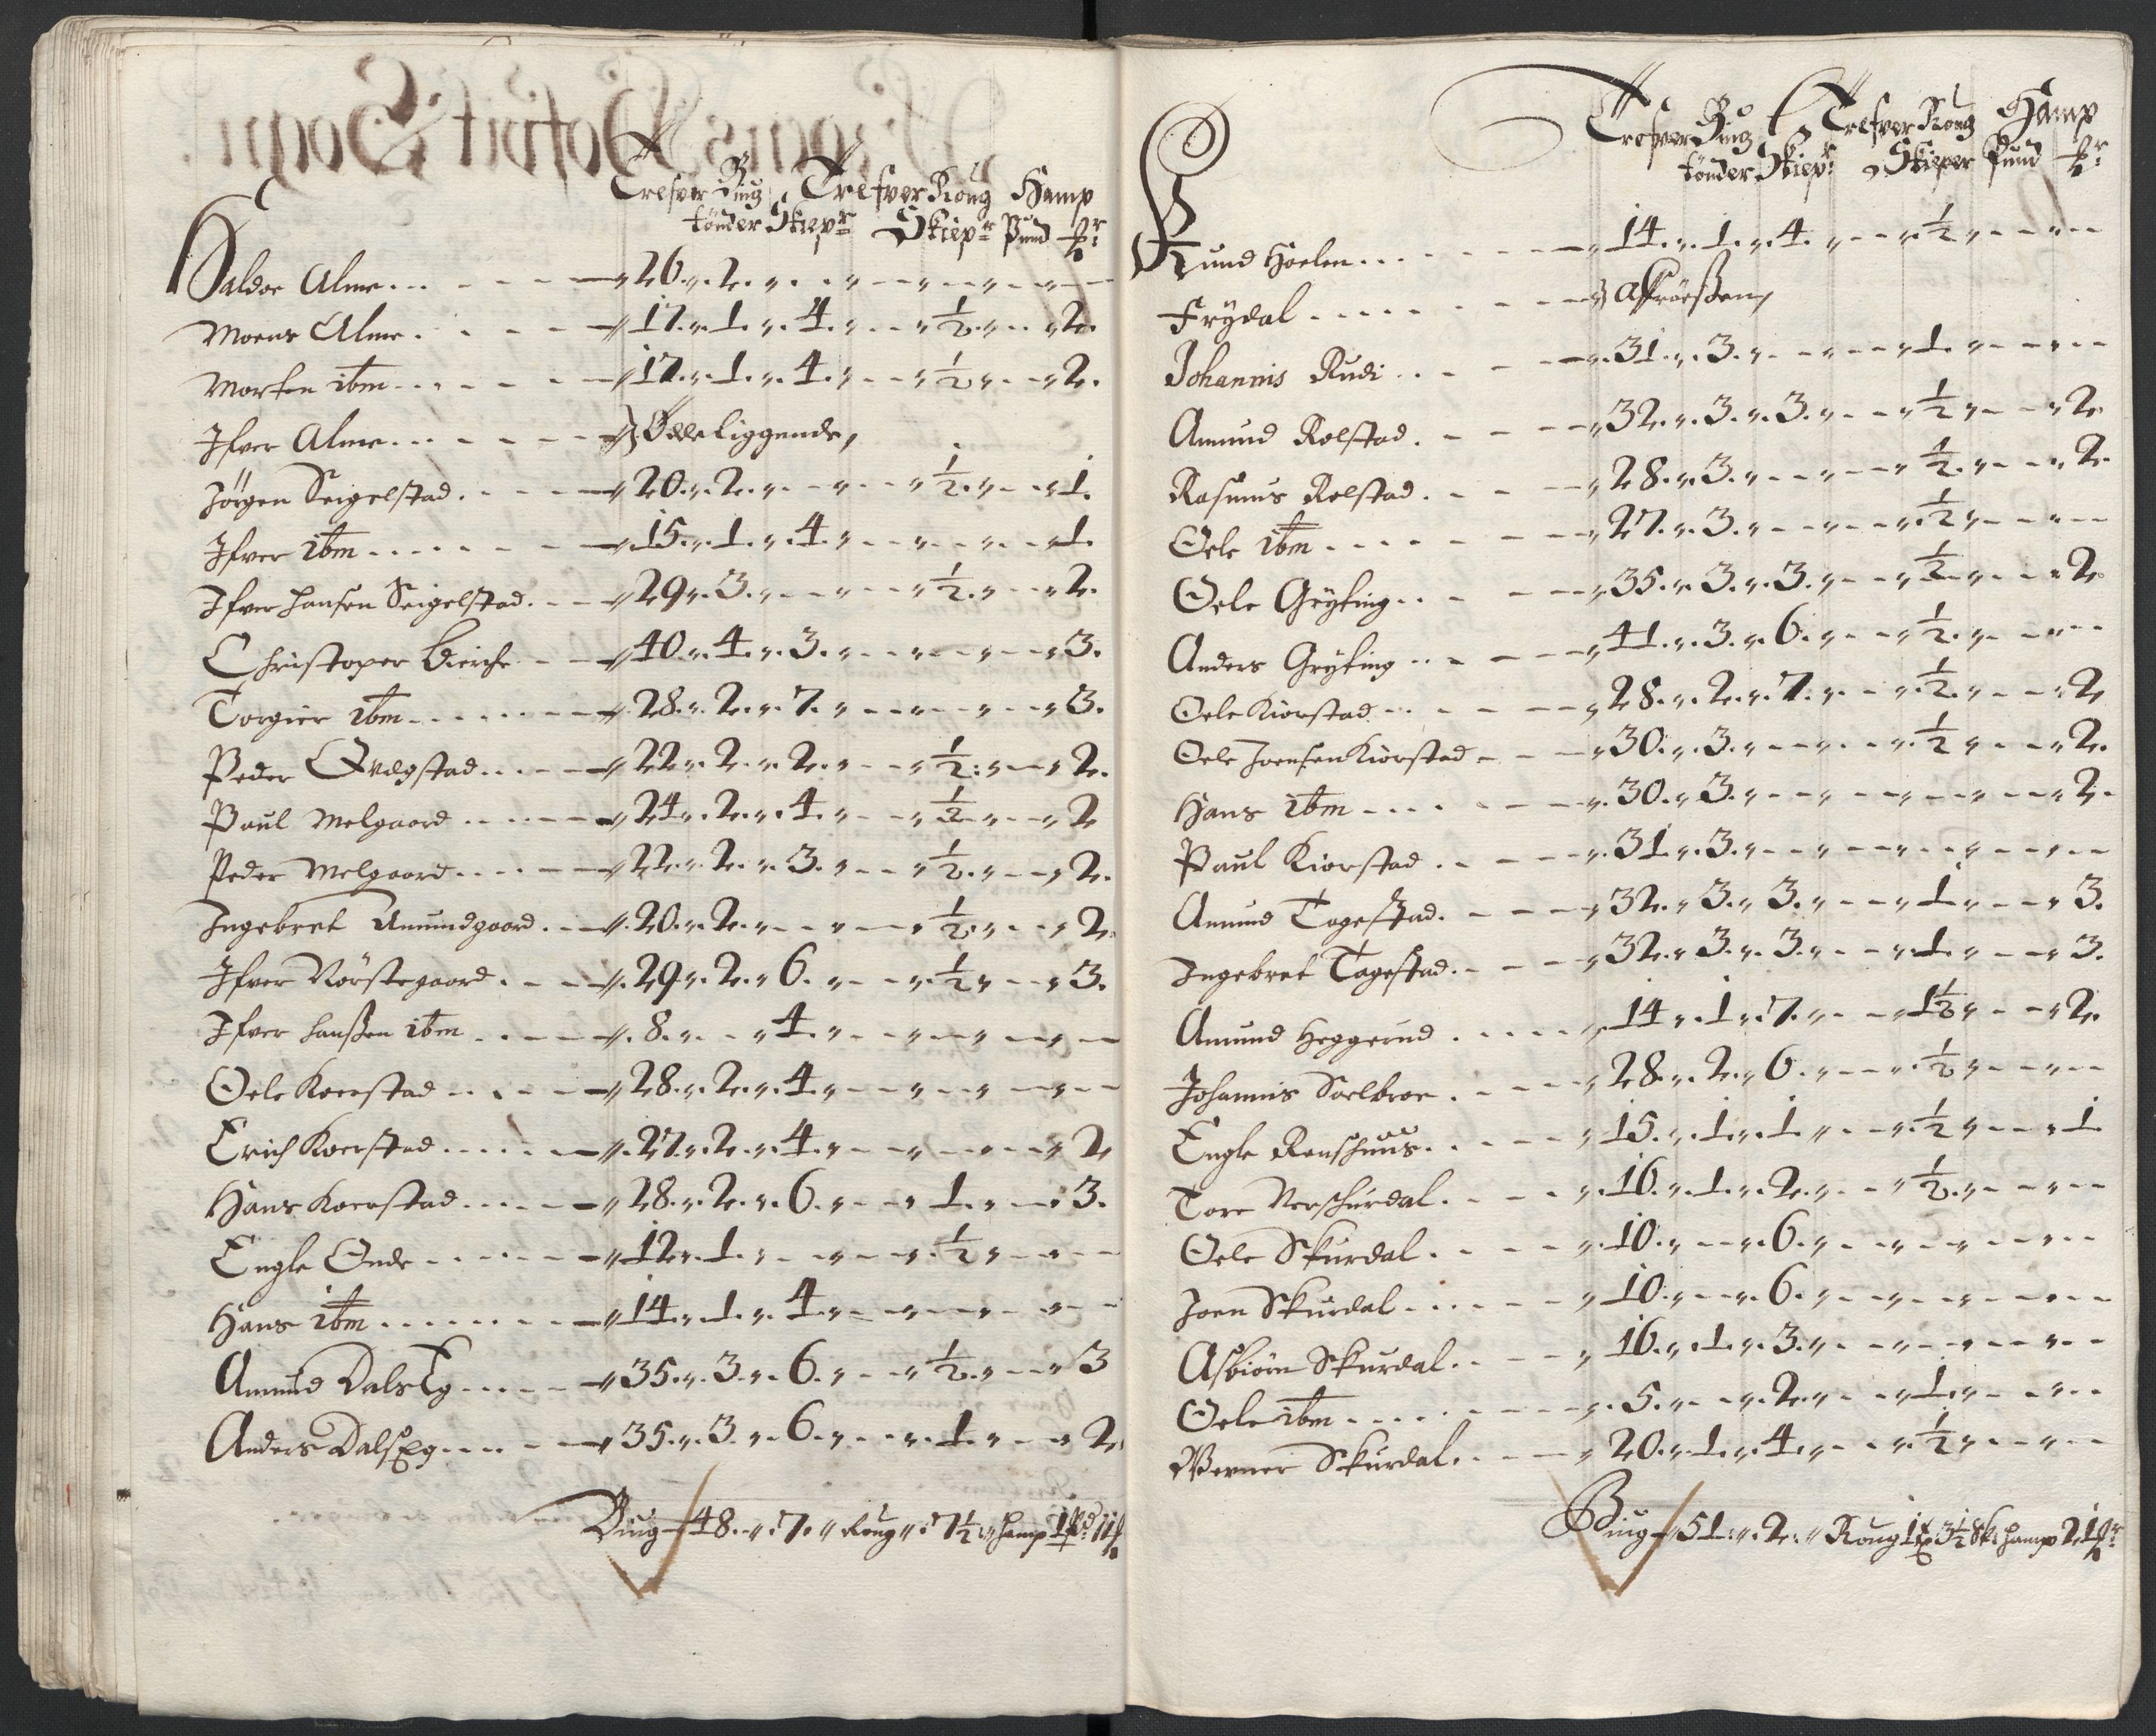 Trefver Biug, Trefver Roug Hamp
tönder Skiepr Skiepr Pund ℔r
Haldor Alme... - - - 26.„.2.„. . „ - „ - „ - „
Moens Alme. - - - 17.„.1.„.4.„ - - „ ½.„ - - „ 2.
Morten ibm - - - - 17.„.1.„.4.„ - - „ ½ „ - - „ 2.
Ifver Alme... - - - Ødeliggende,
Jörgen Seigelstad. - - - 20.„.2.„ - - „ - - „ ½.„ - - „ 1.
Ifver ibm - - - - 15.„.1.„.4.„ - - „ - - „ - - „ 1.
Ifver Hansen Seigelstad. - - 29„.3.„ - - „ - - „ ½.„ - - „ 2.
Christoper Bierche - - 40„.4.„.3.„ - - „ - - „ - „ 3.
Torgier ibm - - - - 28.„.2.„.7.„ - - „ - - „ - „ 3.
Peder Qvægstad... - - 22„.2.„.2.„ - - „ ½:„ - „ 2.
Paul Melgaard ... - - 24„.2.„.4.„ - - „ ½ „ - - „ 2
Peder Melgaard.... - - 22.„.2.„.3.„ - - „ ½.„ - - „ 2.
Ingebret Amundgaard. - - 20.„.2.„ - - „ - - „ ½.„ - - „ 2.
Ifver Nörstegaard. - - - 29„.2.„ 6.„ - - „ ½ „ - - „ 3.
Ifver Hanßen ibm - - - 8.„ - - „ 4.„ - - „ - „ - „ -
Oele Koerstad - - - - 28.„.2.„.4.„ - - „ - - „ - „ - -
Erich Koerstad ..... - 27.„.2.„.4.„ - - „ - „ - „ 2
Hans Koerstad.... - - 28.„.2.„.6.„ - - „ 1.„ - „ 3.
Engle Onde - - - - 12„.1.„ - - „ - - „ ½ „ - „ - -
Hans ibm ....... - 14.„.1.„.4.„ - - „ - - „ - „ -
Amund Dalseg.... - 35.„.3.„.6.„ - - „ ½.„ - - „ 3
Anders Dalseg.... - 35.„.3.„.6.„ - - „ 1.„ - - „ 2.
Biug 48.„.7.„ Roug „.7½.„ Hamp 1 Pd 11 ℔
Trefver Biug Trefver Roug Hamp
tönder Skiepr Skieper Pund ℔r
Knud Hoelen.... - - - „ 14.„.1.„.4.„ - - „ ½ „ - - „ - -
Frydal ..... - - - Afröeßen,
Johannis Rudi .. - - „.31.„.3.„ - - „ - - „ 1.„ - - „ - -
Amund Rolstad. - - - „ 32.„.3.„.3.„ - - „ ½ „ - - „ 2.
Rasmus Rolstad. - - - „ 28.„.3.„ - - „ - - „ ½.„ - - „ 2.
Oele ibm .... - - - „ 27.„.3.„ - - „ - - „ ½ „ - - „ - -
Oele Gryting.. - - - „ 35.„.3.„.3.„ - - „ ½ „ - - „ 2.
Anders Gryting .. - - - „ 41.„.3.„.6.„ - - „ ½.„ - - „ - -
Oele Kiorstad - - - - „ 28.„.2.„.7.„ - - „ ½.„ - - „ 2
Oele Joensen Kiorstad - - - „ 30.„.3.„ - - „ - - „ ½ „ - - „ 2.
Hans ibm - - - - „.30.„.3.„ - - „ - - „ - „ - - „ 2.
Paul Kiorstad . - - - „.31.„.3.„ - - „ - - „ - „ - - „ - -
Amund Togestad. - - - „ 32.„.3.„.3.„ - - „ 1.„ - - „ 3.
Ingebret Tagestad. - - - „ 32.„.3.„.3.„ - - „ 1.„ - - „ 3.
Amund Heggerud ..... „ 14.„.1.„.7.„ - - „ 1½ „ - - „ 2.
Johannis Soelbroe . - - - „ 28.„.2.„.6.„ - - „ ½ „ - - „ - -
Engle Ronschuus. - - - „ 15.„.1.„.1.„ - - „ ½ „ - - „ 1.
Tore Nerschurdal. - - - „.16.„.1.„.2.„ - - „ ½.„ - - „ - -
Oele Skurdal . - - - „.10.„ - - „.6.„ - - „ - „ - - „ - -
Joen Skurdal .... - - „ 10.„ - - „.6.„ - - „ - „ - - „ - -
Asbiörn Skurdal. - - - „ 16.„.1.„.3.„ - - „ - „ - - „ - -
Oele ibm .... - - - „.5.„ - - „.2.„ - - „ 1.„ - - „ - -
Werner Skurdal. - - - „ 20.„.1.„.4.„ - - „ ½ „ - - „ - -
Biug 51.„.2.„ Roug 1 t 3½ Sk: Hamp 21 ℔r